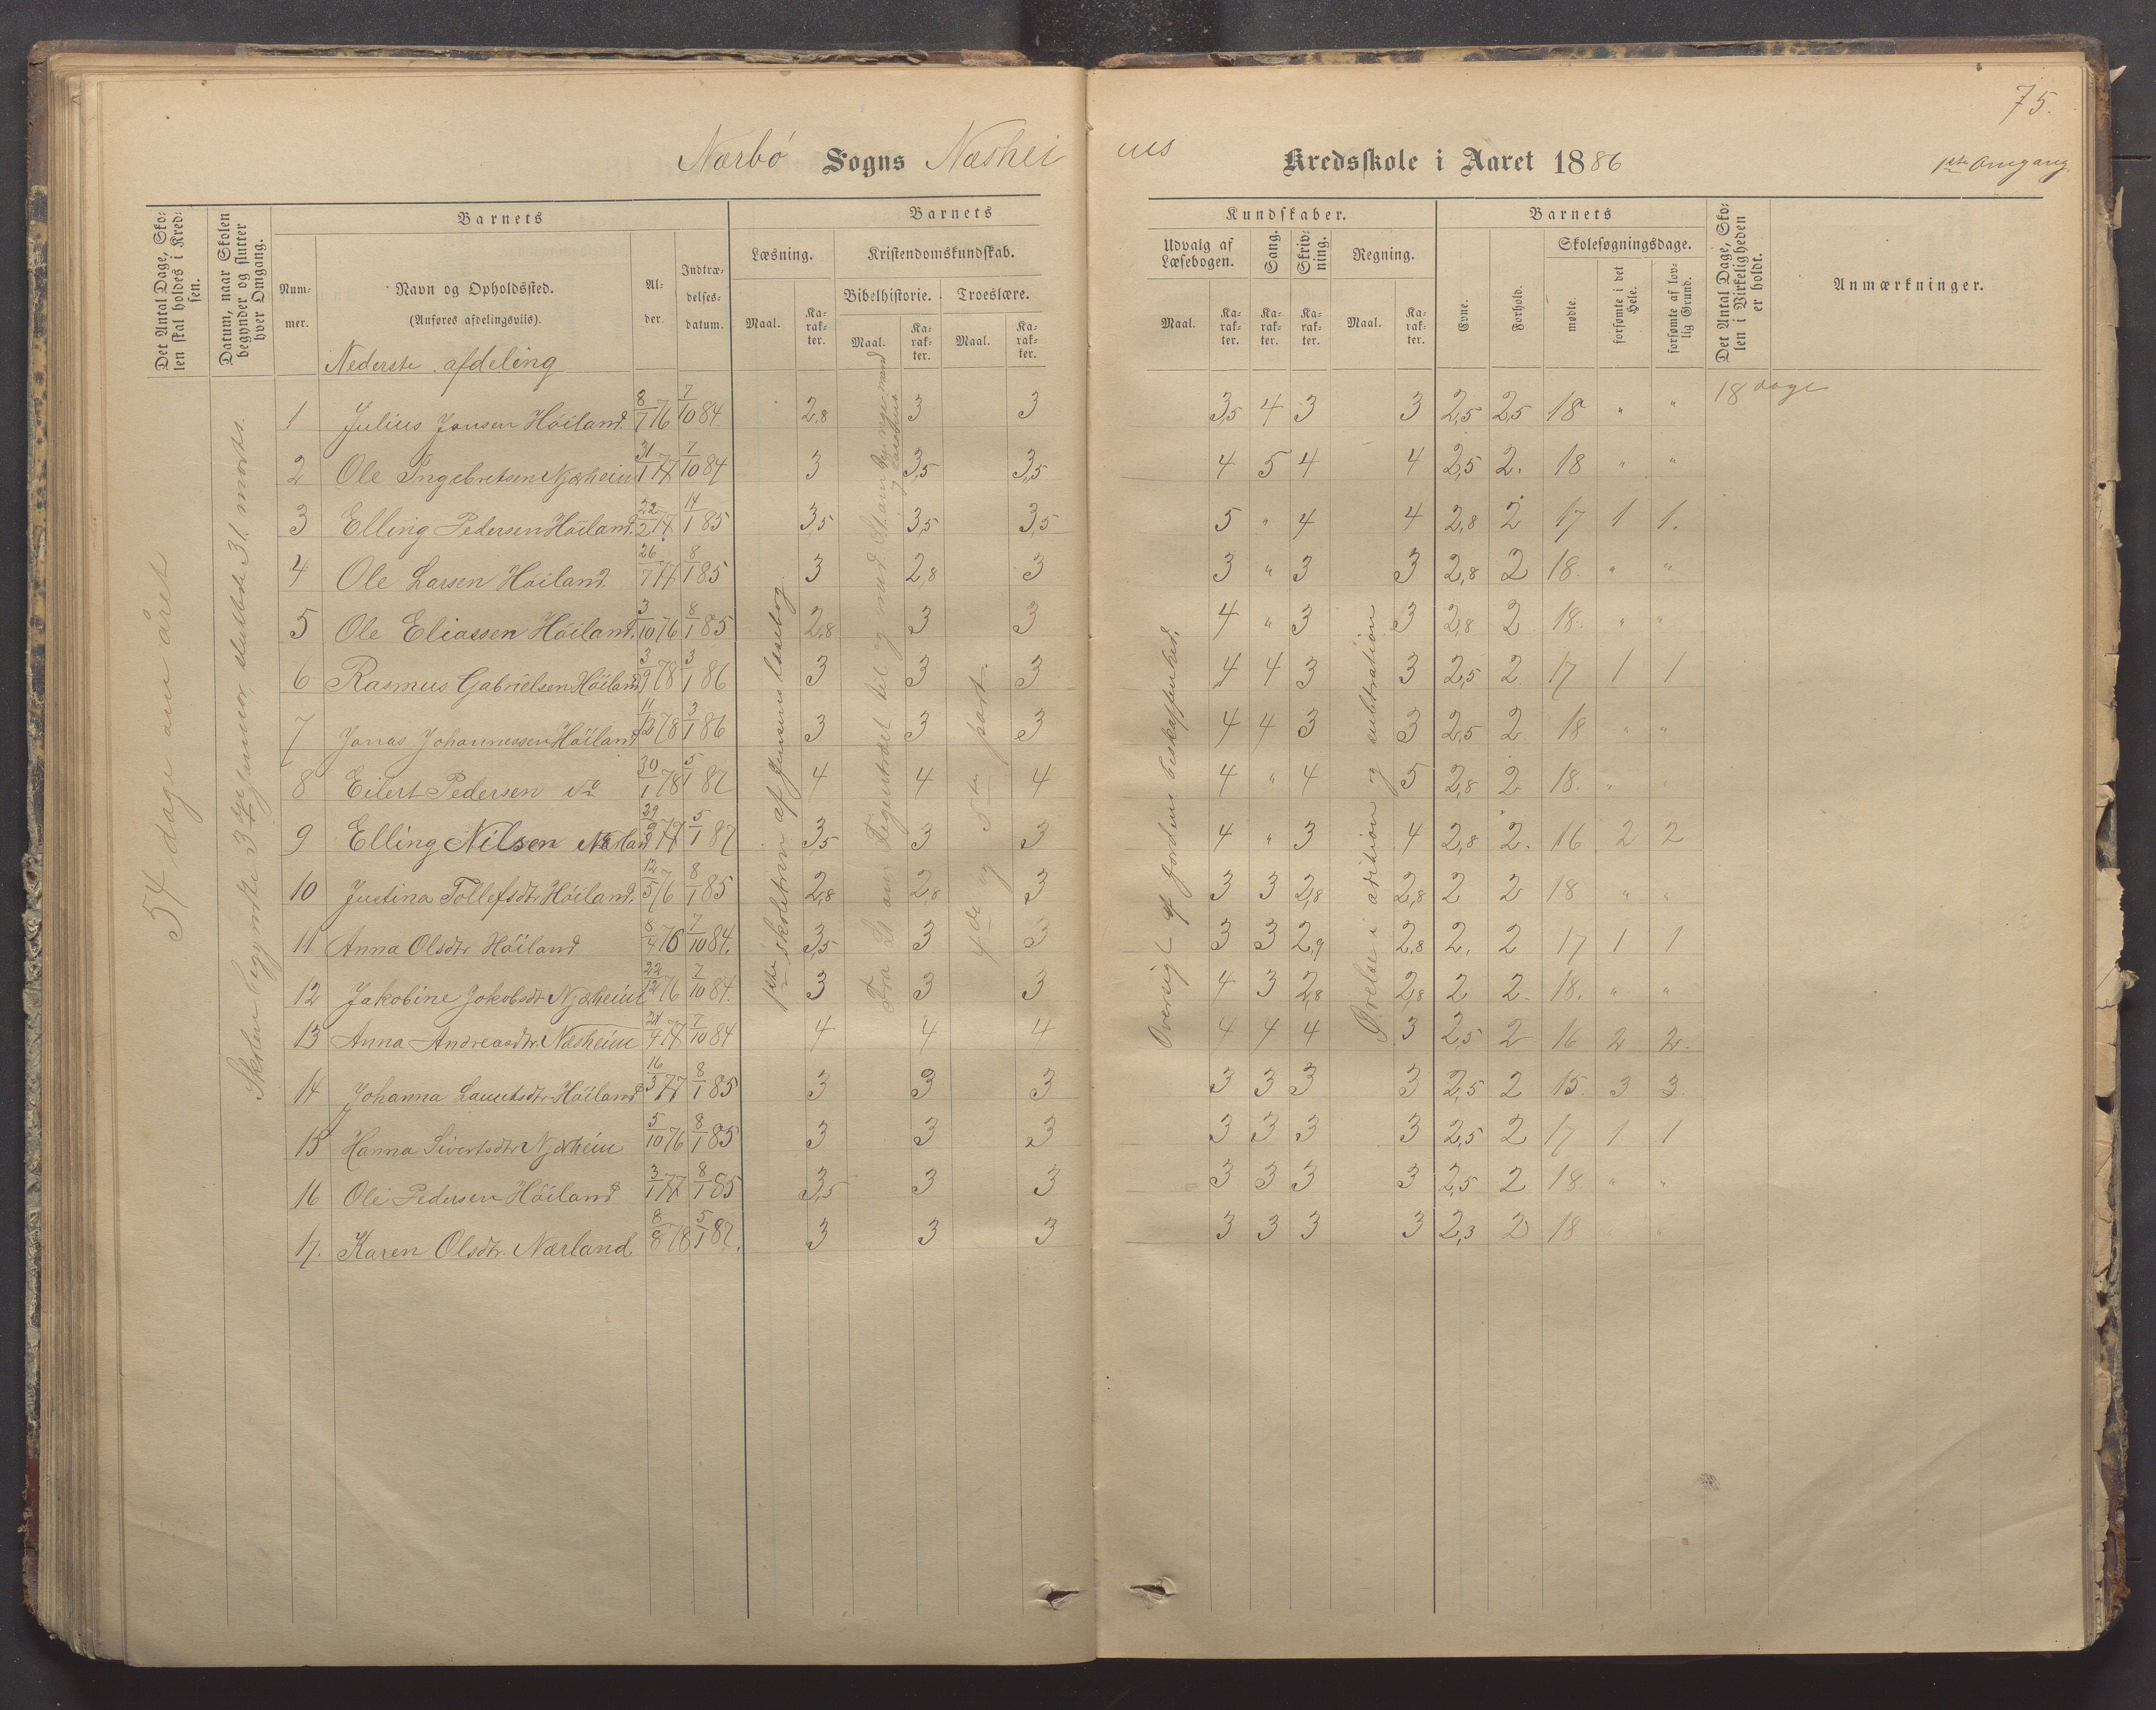 75.
Nærbö Sogns Næshei
ms Kredsskole i Aaret 1886
1ste Omgang.
Det Antal Dage, Sko-
len skal holdes i Kred-
sen.
Datum, naar Skolen
begynder og slutter
hver Omgang.
Barnets
Num-
mer.
Navn og Opholdssted.
(Anføres afdelingsviis).
Al-
der.
Indtræ-
delses-
datum.
Barnets
Læsning.
Kristendomskundskab.
Bibelhistorie. Troeslære.
Maal.
Ka-
rak-
ter.
Maal.
Ka-
rak-
ter.
Maal.
Ka-
rak-
ter.
Kundskaber.
Udvalg af
Læsebogen.
Sang.
Skriv-
ning.
Regning.
Maal.
Ka-
rak-
ter.
Ka-
rak-
ter.
Ka-
rak-
ter.
Maal.
Ka-
rak-
ter.
Barnets
Evne.
Forhold.
Skolesøgningsdage.
mødte.
forsømte i det
Hele.
forsømte af lov-
lig Grund.
Det Antal Dage, Sko-
len i Virkeligheden
er holdt.
Anmærkninger.
54 dage om året
Skolen begyndte 3die januar, sluttede 31. marts.
Nederste afdeling
1ste skoletrin af Jensens læsebog.
4de og 5te part.
Oversigt af jordens beskaffenhed.
Øvelse i addition og subtraktion
18 dage
1 Julius Jonsen Höiland. 8/7 76 7/10 84 2,8 3 3 3,5 4 3 3 2,5 2,5 18 " "
2 Ole Ingebretsen Njærheim 31/1 77 7/10 84 3 3,5 3,5 4 5 4 4 2,5 2. 18 " "
3 Elling Pedersen Höiland. 22/2 77 14/1 85 3,5 3,5 3,5 5 " 4 4 2,8 2 17 1 1.
4 Ole Larsen Höiland. 26/7 77 8/1 85 3 2,8 3 3 " 3 3 2,8 2 18. " "
5 Ole Eliassen Höiland. 3/10 76 8/1 85 2,8 3 3 4 " 3 3 2,8 2 18. " "
6 Rasmus Gabrielsen Höiland 3/9 78 3/1 86 3 3 3 4 4 3 3 2,5 2. 17 1 1
7 Jonas Johannessen Höiland 11/12 78 3/1 86 3 3 3 4 4 3 3 2,5 2. 18 " "
8 Eilert Pedersen do 30/1 78 5/1 87 4 4 4 4 " 4 5 2,8 2 18. "
9 Elling Nilsen Nærland 29/9 77 5/1 87 3,5 3 3 4 " 3 4 2,8 2. 16 2 2
10 Justina Tollefsdtr Höiland. 12/5 76 8/1 85 2,8 2,8 3 3 3 2,8 2,8 2 2 18 " "
11 Anna Olsdtr Höiland 8/4 76 7/10 84. 3,5 3 3 3 3 2,9 2,8 2. 2 17 1 1
12 Jakobine Jokobsdtr Njærheim 22/12 76 7/10 84. 3 3 3 4 3 2,8 2,8 2 2. 18. " "
13 Anna Andreasdtr. Næsheim 24/4 77 7/10 84 4 4 4 4 4 4 3 2,5 2 16 2 2.
14 Johanna Lauritsdtr Höiland 16/3 77 8/1 85 3 3 3 3 3 3 3 2,5 2 15. 3 3.
15 Hanna Sivertsdtr Njærheim 5/10 76 8/1 85 3 3 3 3 3 3 3 2,5 2 17 1 1
16 Ole Pedersen Höiland 3/1 77 8/1 85 3,5 3 3 3 3 3 3 2,5 2 18. " "
17. Karen Olsdtr. Nærland 8/8 78 5/1 87. 3 3 3 3 3 3 3 2,3 2 18 " "